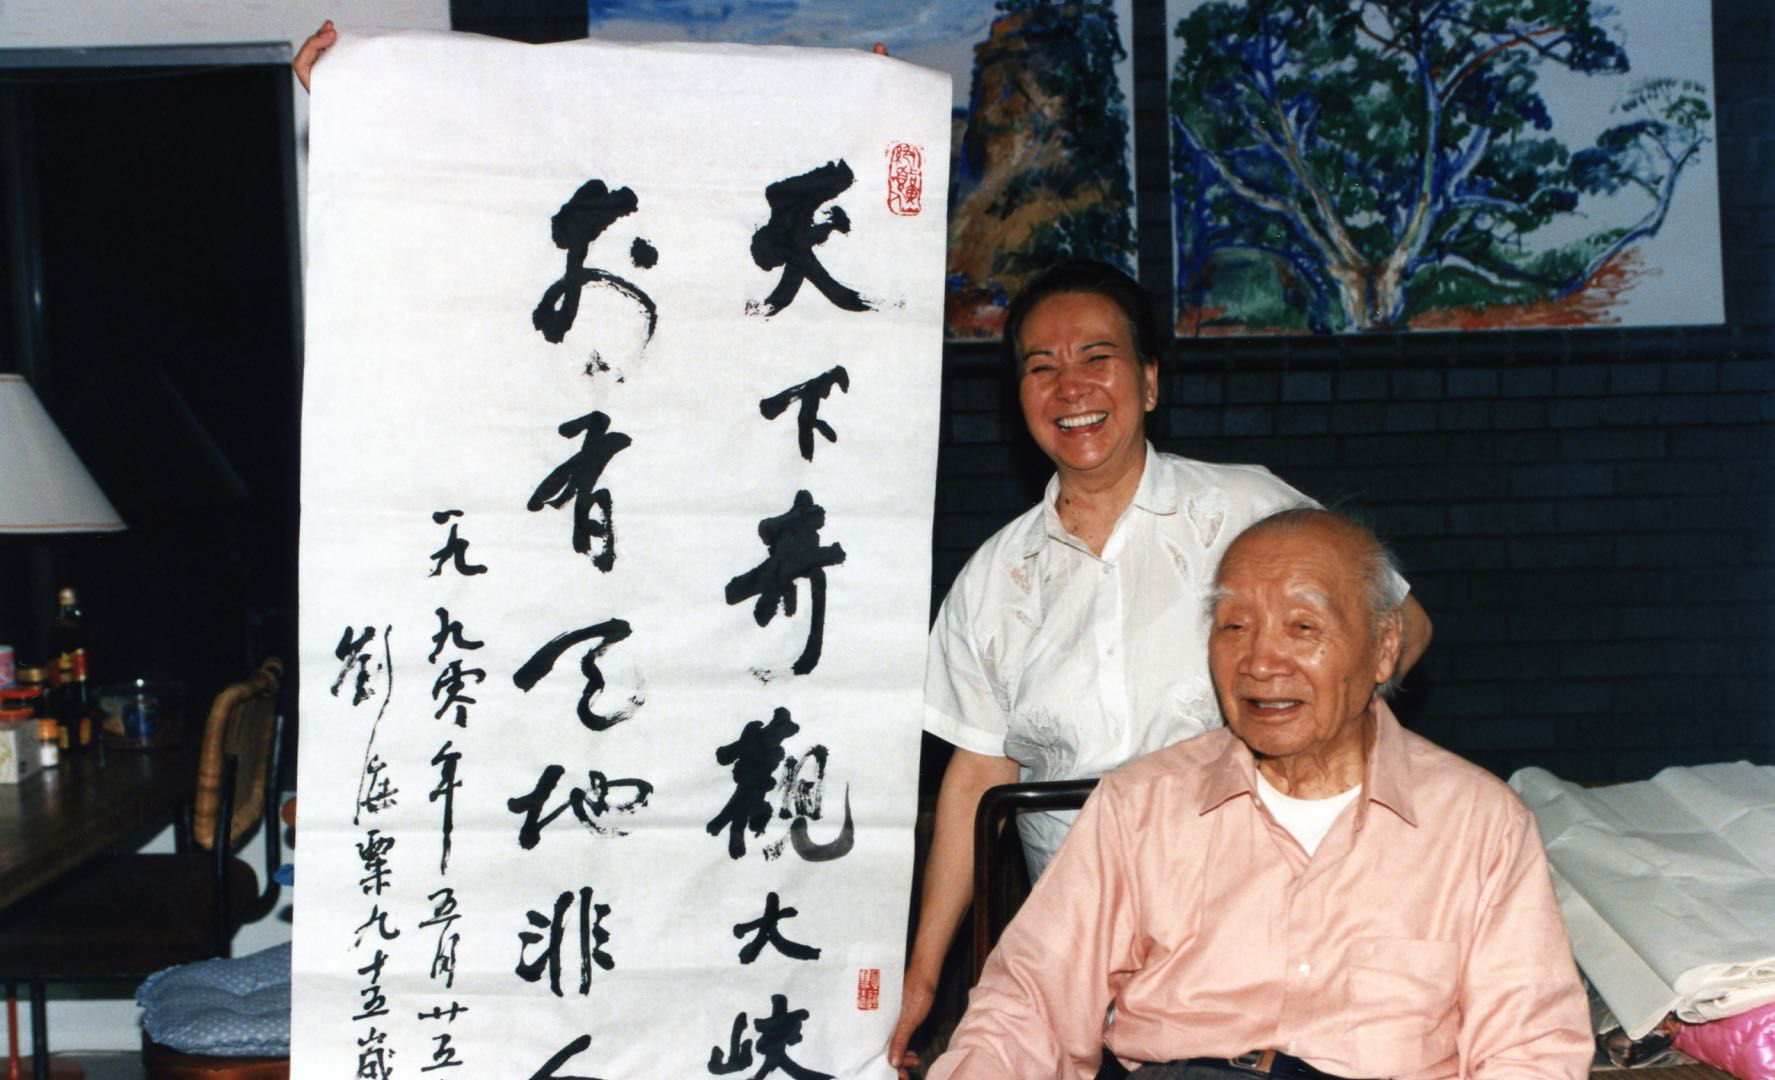 天下奇觀大峽
別有天地非人
一九九零年五月廿五
劉海粟九十五歲